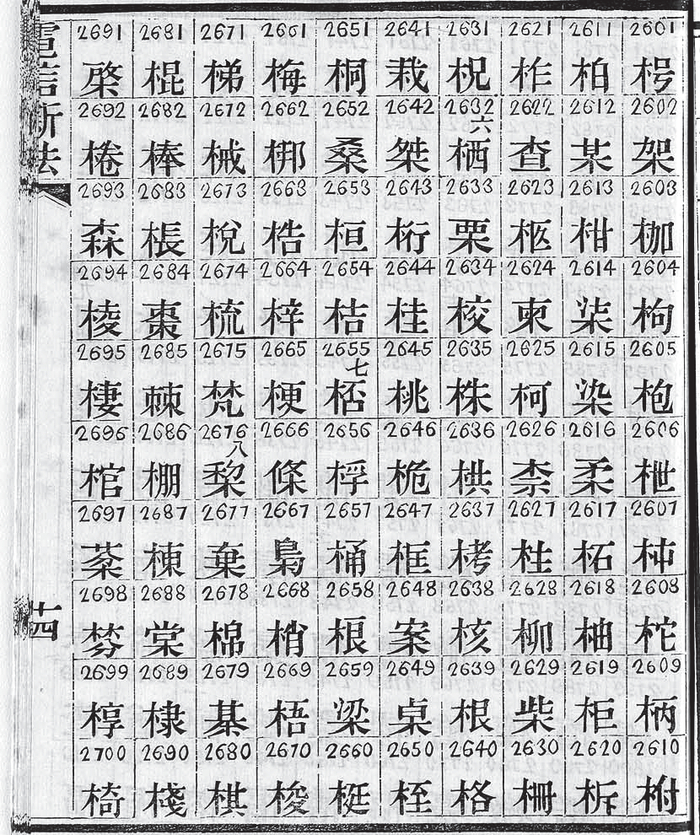 2601 枵 2602 架 2603 枷 2604 枸 2605 枹 2606 枻 2607 杶 2608 柁 2609 柄 2610 柎
2611 柏 2612 某 2613 柑 2614 柒 2615 染 2616 柔 2617 柘 2618 柚 2619 柜 2620 柝
2621 柞 2622 查 2623 柩 2624 柬 2625 柯 2626 柰 2627 柱 2628 柳 2629 柴 2630 柵
2631 柷 2632 六 栖 2633 栗 2634 校 2635 株 2636 栱 2637 栲 2638 核 2639 根 2640 格
2641 栽 2642 桀 2643 桁 2644 桂 2645 桃 2646 桅 2647 框 2648 案 2649 桌 2650 桎
2651 桐 2652 桑 2653 桓 2654 桔 2655 七 桮 2656 桴 2657 桶 2658 桹 2659 梁 2660 梃
2661 梅 2662 梆 2663 梏 2664 梓 2665 梗 2666 條 2667 梟 2668 梢 2669 梧 2670 梭
2671 梯 2672 械 2673 梲 2674 梳 2675 梵 2676 八 棃 2677 棄 2678 棉 2679 棊 2680 棋
2681 棍 2682 棒 2683 棖 2684 棗 2685 棘 2686 棚 2687 棟 2688 棠 2689 棣 2690 棧
2691 棨 2692 棬 2693 森 2694 棱 2695 棲 2696 棺 2697 棻 2698 棼 2699 椁 2700 椅
電信新法
十四